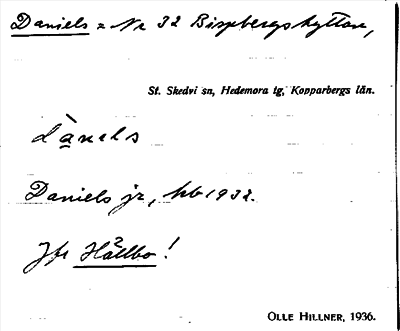 Daniels = Nr 32 Bispbergshyttan,
St. Skedvi sn, Hedemora tg, Kopparbergs län.
dànels
Daniels jr, hb 1932.
Jfr Hållbo!
OLLE HILLNER, 1936.